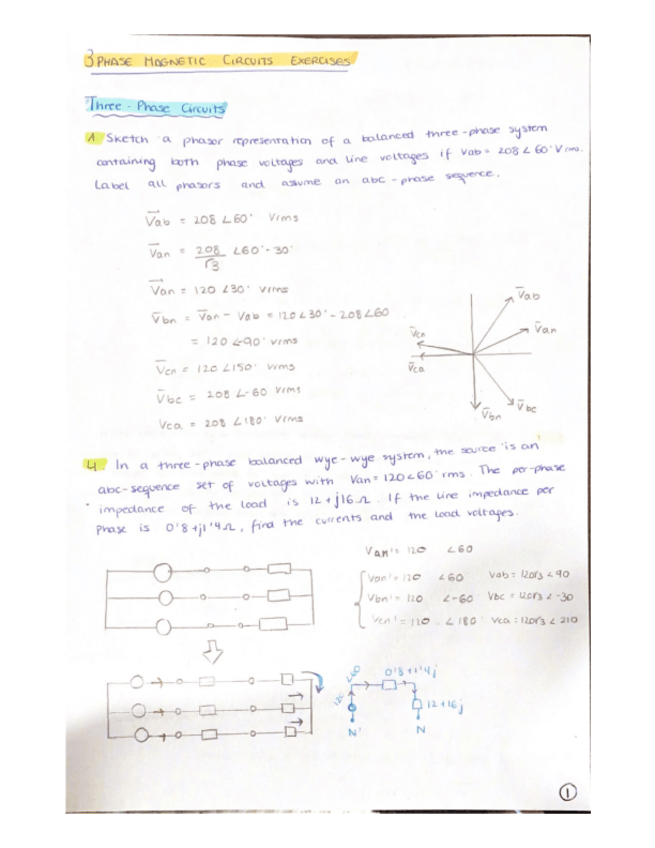 3 PHASE MAGNETIC CIRCUITS EXERCISES
Three-Phase Circuits
1. Sketch a phasor representation of a balanced three-phase system
containing both phase voltages and line voltages if Vab = 208∠60° Vrms.
Label all phasors and assume an abc-phase sequence.
Vab = 208∠60° Vrms
Van = 208/√3 ∠60°-30°
Van = 120∠30° Vrms
Vbn = Van - Vab = 120∠30° - 208∠60
= 120∠-90° Vrms
Vcn = 120∠150° Vrms
Vbc = 208∠-60 Vrms
Vca = 208∠180° Vrms
Vab
Van
Vcn
Vca
Vbn
Vbc
4. In a three-phase balanced wye-wye system, the source is an
abc-sequence set of voltages with Van = 120∠60° rms. The per-phase
impedance of the load is 12+j16Ω. If the line impedance per
phase is 0'8+j1'4Ω, find the currents and the load voltages.
Van' = 120 ∠60
Van' = 120 ∠60 Vab = 120√3∠90
Vbn' = 120 ∠-60 Vbc = 120√3∠-30
Vcn' = 120 ∠180° Vca = 120√3∠210
120 ∠60
0'8+1'4j
12+16j
N'
N
1